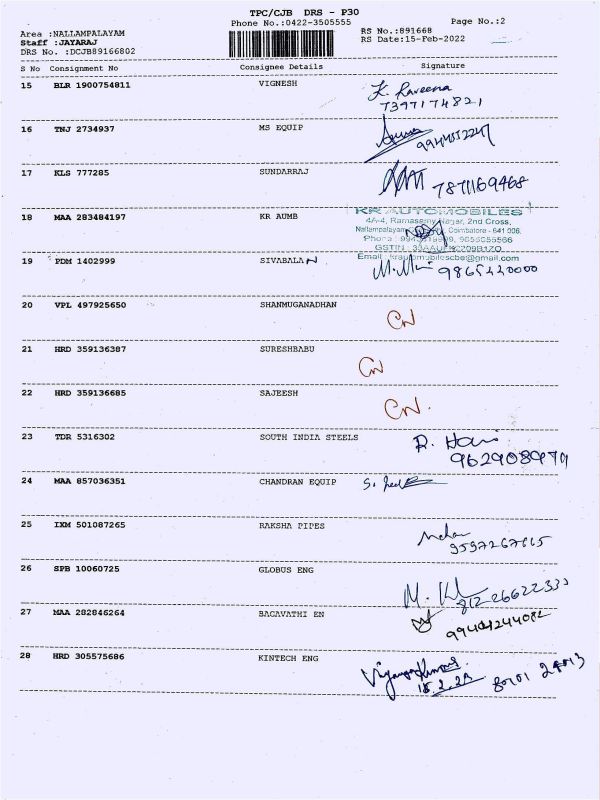 TPC/CJB DRS - P30
Phone No.:0422-3505555
Page No.:2
Area :NALLAMPALAYAM
Staff :JAYARAJ
DRS No. :DCJB89166802
RS No.:891668
RS Date:15-Feb-2022
S No Consignment No Consignee Details Signature
15 BLR 1900754811 VIGNESH K. Raveena
7397174821
16 TNJ 2734937 MS EQUIP
17 KLS 777285 SUNDARRAJ 7871169468
18 MAA 283484197 KR AUMB KR AUTOMOBILES
4A-4, Ramasamy Nagar, 2nd Cross,
Nallampalayam Coimbatore - 641 006.
Phone : 9655055566
GSTIN :
Email : krautomobilescbe@gmail.com
19 PDM 1402999 SIVABALAN
20 VPL 497925650 SHANMUGANADHAN CN
21 HRD 359136387 SURESHBABU CN
22 HRD 359136685 SAJEESH CN.
23 TDR 5316302 SOUTH INDIA STEELS R. Hari
24 MAA 857036351 CHANDRAN EQUIP
25 IXM 501087265 RAKSHA PIPES
26 SPB 10060725 GLOBUS ENG
27 MAA 282846264 BAGAVATHI EN
28 HRD 305575686 KINTECH ENG